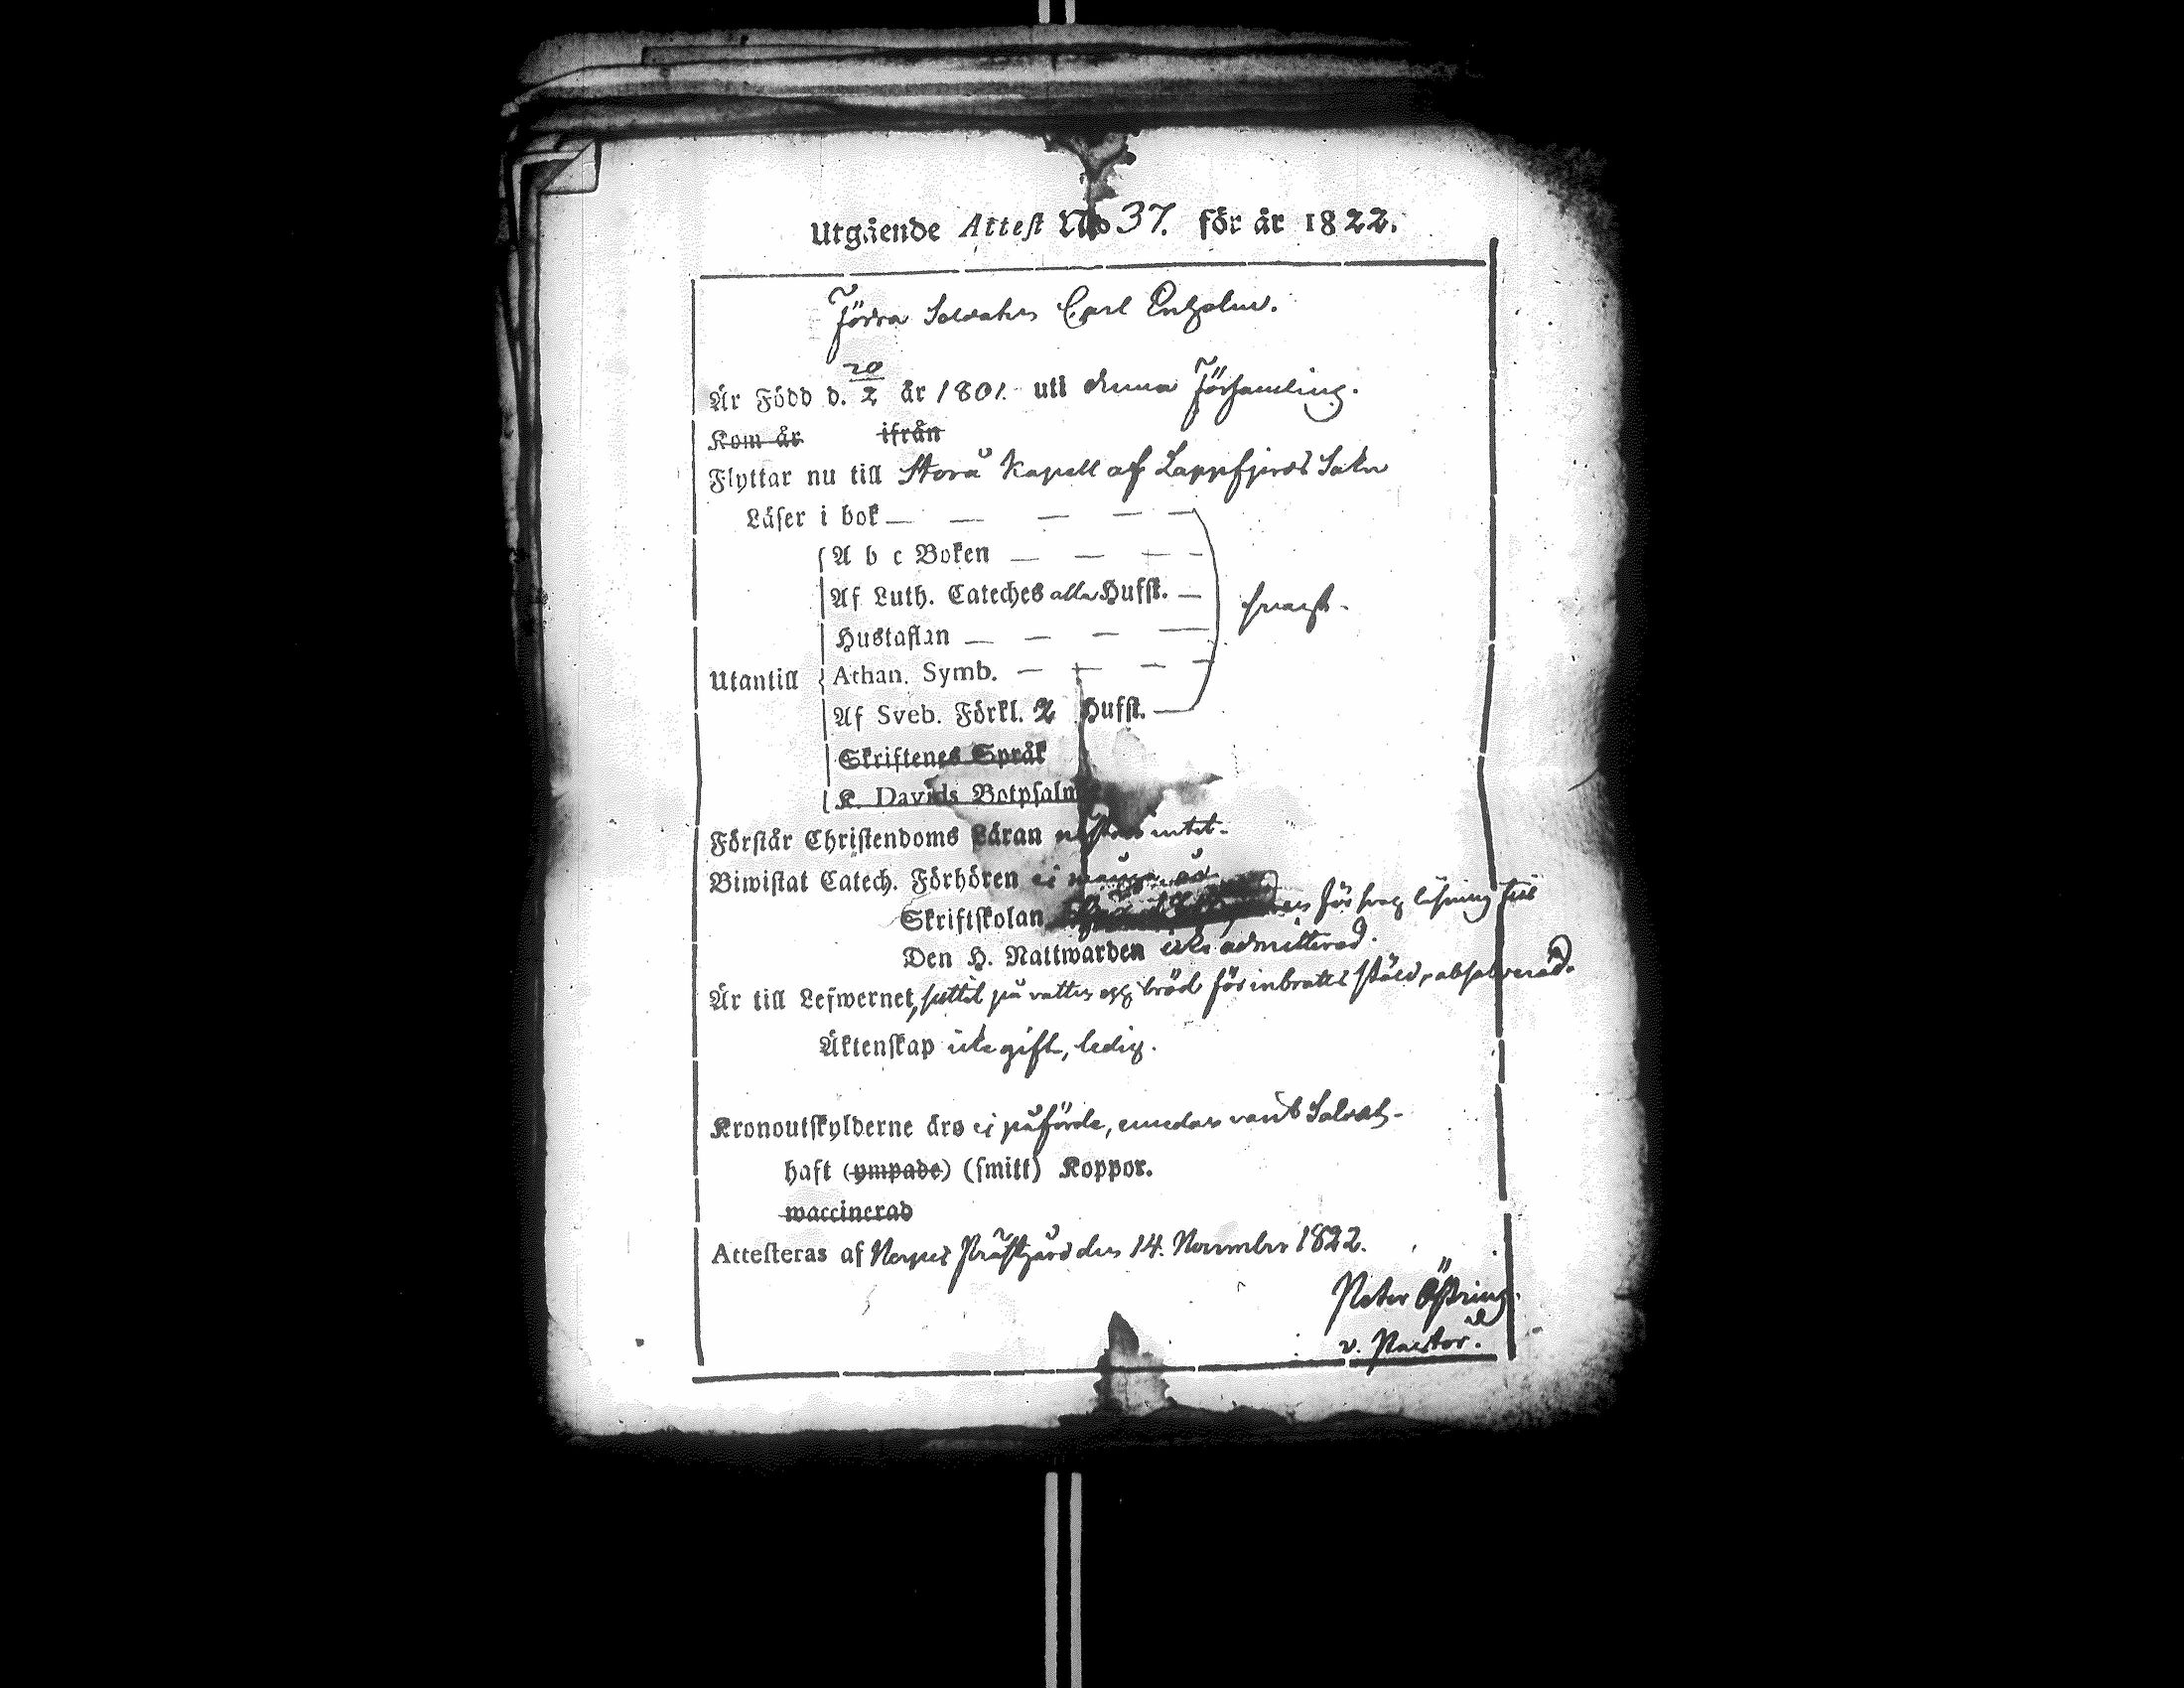 Utgående Attest No 37. för år 1822.
Förra Soldaten Carl Enholm.
Är Född d. 20/2 år 1801. uti denna Församling.
Kom år ifrån
Flyttar nu till Storå Kapell af Lappfjerds Sokn
Läser i bok — — — — —
A b c Boken — — — -
Af Luth. Cateches alla Hufst. —
svagt.
Hustaflan — — — —
Utantill
Athan. Symb. — — — —
Af Sveb. Förkl. 2 Hufst. —
Skriftenes Språk
K. Davids Botpsalm
Förstår Christendoms Läran nästan intet.
Biwistat Catech. Förhören ei många år
Skriftskolan för svag läsning till
Den H. Nattwarden icke admitterad.
Är till Lefwernet, suttit på vatten och bröd för inbrotts stöld, absolverad.
Äktenskap icke gift, ledig.
Kronoutskylderne äro ei påförde, emedan varit Soldat.
haft (ympade) (smitt) Koppor.
waccinerad
Attesteras af Nerpes Prästgård den 14. November 1822.
Peter Östring
v. Pastor.